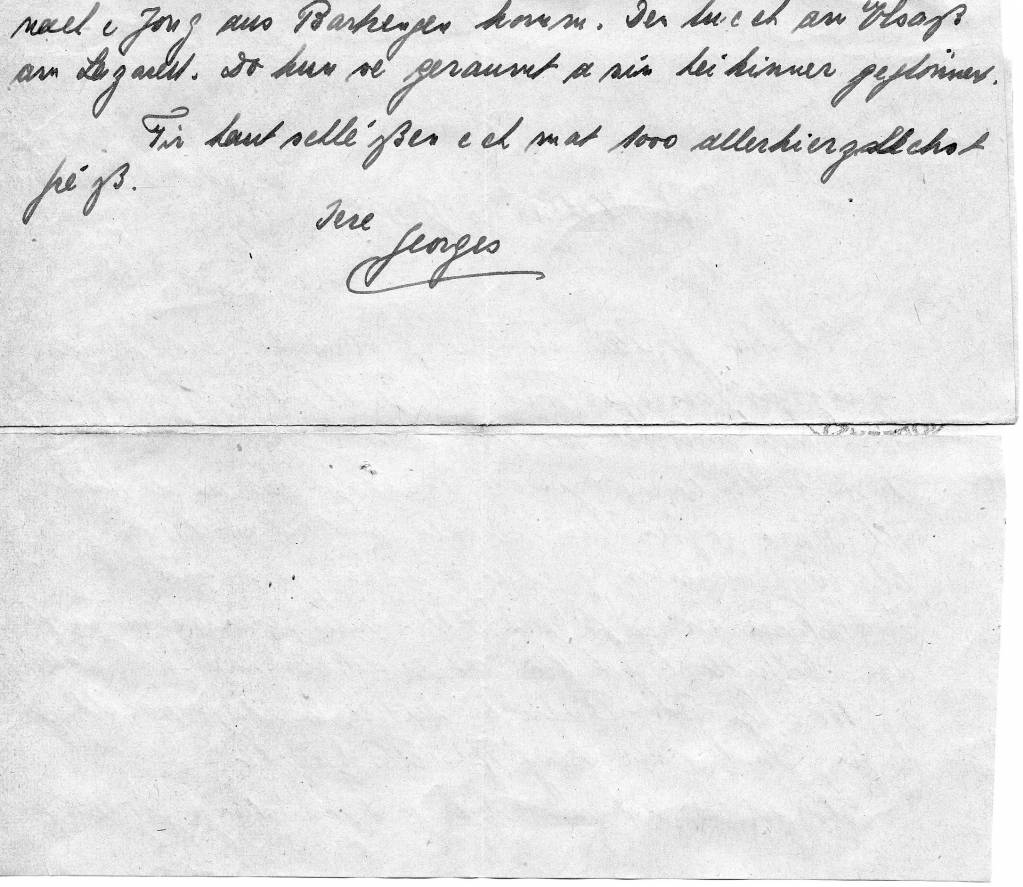 noch e Jong aus Bartrengen komm. Den luch am Elsaß
am Lazarett. Do hun se geraumt a sin hei hinner geflönnert.
Fir haut schléßen ech mat 1000 allerhierzlechst
Gréß.
Iere
Georges